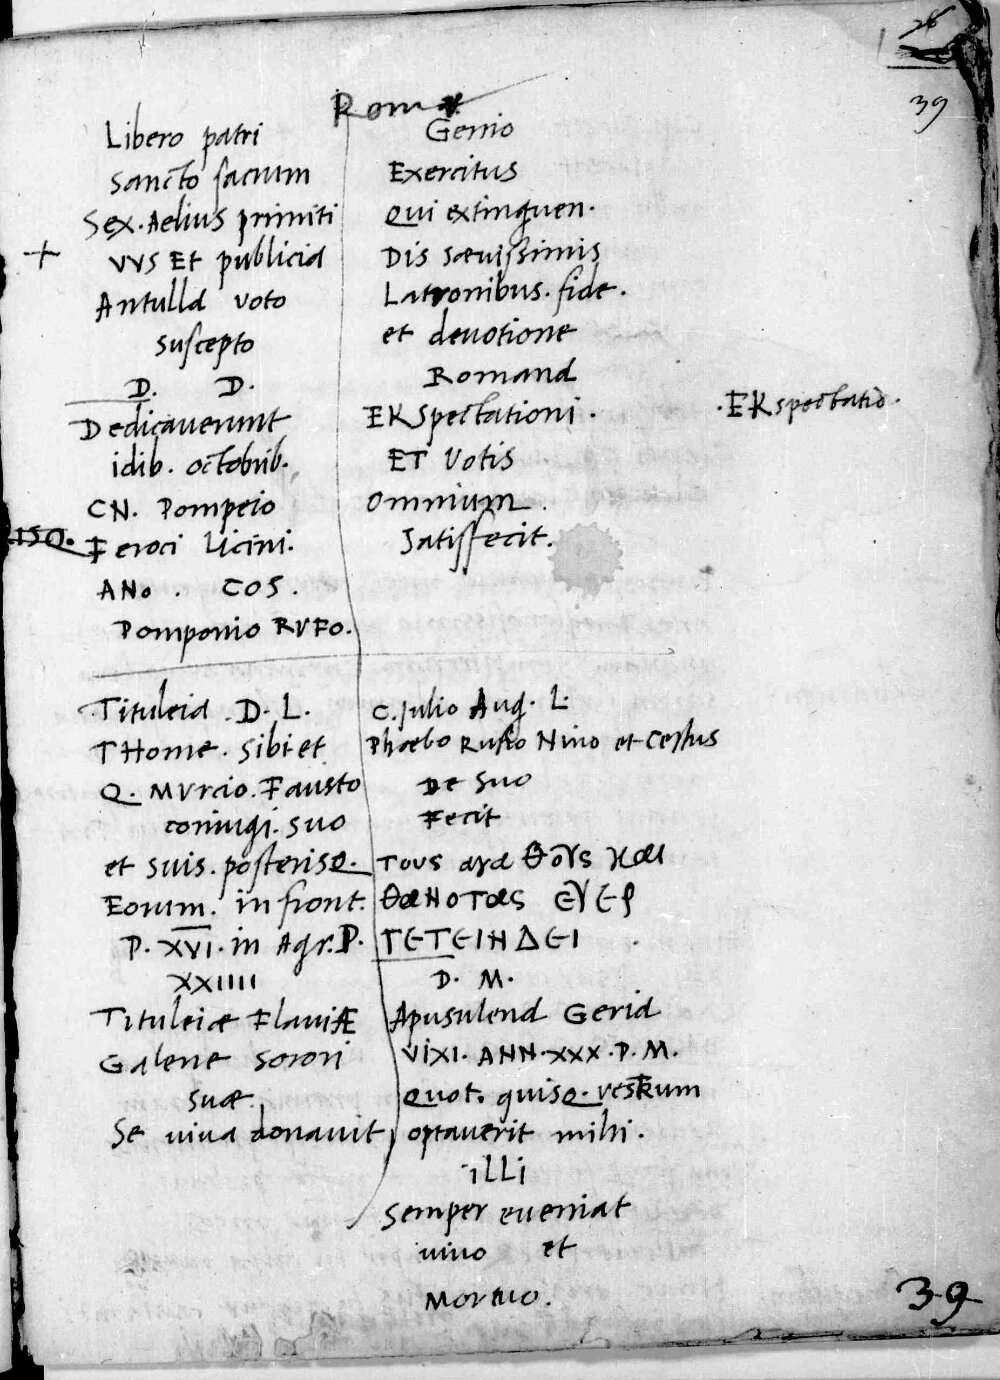 39
Roma
Libero patri
Sancto sacrum
Sex. Aelius primiti
VVS Et publicia
Antulla voto
suscepto
D. D.
Dedicaverunt
idib. octobrib.
CN. Pompeio
150.
Feroci Licini.
ANo . COS.
Pomponio RVFO.
Genio
Exercitus
Qui extinguen.
Dis sævissimis
Latronibus. fide.
et devotione
Romana
EKspectationi. .EKspectatio.
ET Votis
Omnium.
Satisfecit.
Tituleia .D. L.
THome. Sibi et
Q. MVrcio. Fausto
coniugi. suo
et suis. posterisq.
Eorum. in front.
P. XVI. in Agr. P.
XXIIII
Tituleiæ FlaviÆ
Galene sorori
suæ.
Se viva donavit
C. Julio Aug. L.
Phoebo Rufio Nino et Cestus
De Suo
Fecit
τους αγαθουs και
θανοτας ευερ
ΓΕΤΕΙΗΔΕΙ
D. M.
Apusulena Geria
VIXI. ANN. XXX. D. M.
Quot. quisq. vestrum
optaverit mihi.
illi
semper eveniat
vivo et
Mortuo.
39